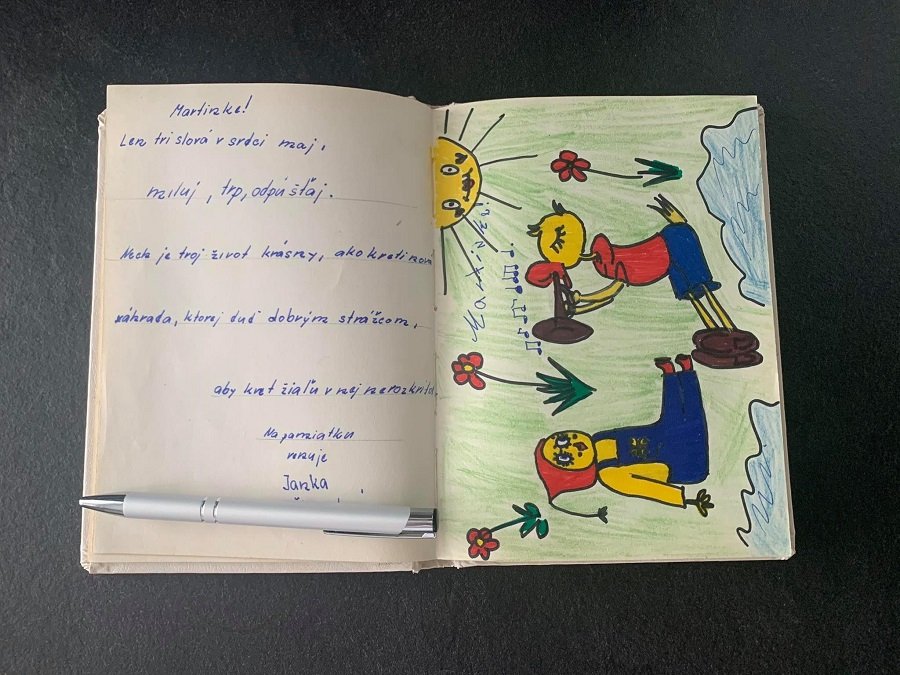 Martinke!
Len tri slová v srdci maj,
miluj, trp, odpúšťaj.
Nech je tvoj život krásny, ako kvetinová
záhrada, ktorej buď dobrým strážcom,
aby kvet žiaľu v nej nerozkvitol.
Na pamiatku
venuje
Janka
Martinke